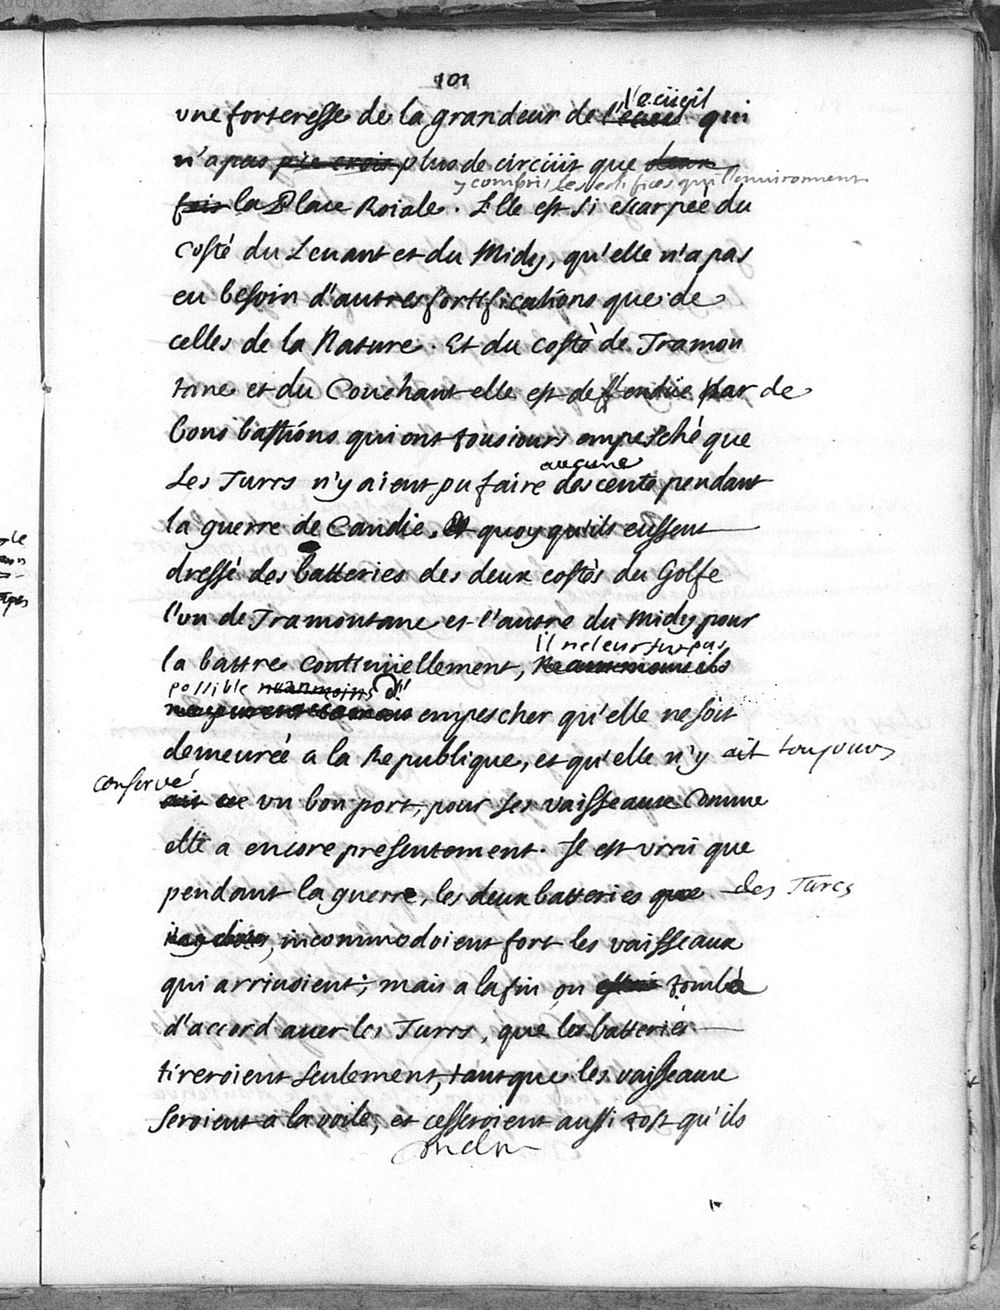 101
l'ecüeil
vne forteresse de la grandeur de qui
n'a pas plus de circüit que deux
y compris les edifices qui l'enuironnent
fois la Place Roiale. Elle est si escarpée du
Costé du Leuant et du Midy, qu'elle n'a pas
eu besoin d'autres fortifications que de
celles de la Nature. Et du costé de Tramon
tane et du Couchant elle est deffendüe par de
bons bastions qui ont tousiours empesché que
aucune
Les Turcs n'y aient pu faire descente pendant
la guerre de Candie, Et quoy qu'ils eussent
dressé des batteries des deux costés du Golfe
l'un de Tramontane et l'autre du Midy pour
il ne leur fut pas
la battre continüellement,
possible neanmoins d'
empescher qu'elle ne soit
demeurée a la Republique, et qu'elle n'y ait toujours
conservé
ait eu vn bon port, pour ses vaisseaux Comme
elle a encore presentement. Il est vrai que
pendant la guerre, les deux batteries que des Turcs
incommodoient fort les vaisseaux
qui arriuoient; mais a la fin on estoit tombé
d'accord auec les Turcs, que les batteries
tireroient seulement, tant que les vaisseaux
seroient a la voile, et cesseroient aussi tost qu'ils